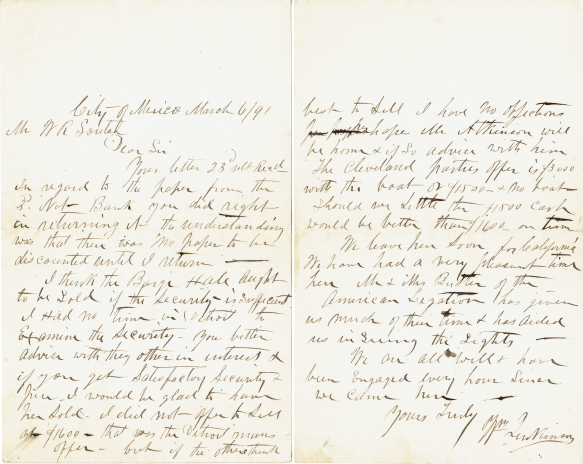 City of Mexico March 6/91
Mr W R
Dear Sir
Your letter 23d ult Recd
in regard to the paper from the
Nat Bank you did right
in returning it the understanding
was that there was no paper to be
discounted until I return
I think the Barge Hale ought
to be Sold if the Security is sufficient
I had no time in Detroit to
Examine the Security - You better
advise with they other in interest &
if you get Satisfactory Security &
Price. I would be glad to have
her Sold. I did not offer to Sell
at $1600 - that was the Detroit mans
offer - but if the others think
best to Sell I have no objections
hope Mr Atkinson will
be home & if So advise with him
The Cleveland parties offer is $3000
with the boat or $1500 - & no boat
Should we Settle the $1500 Cash
would be better than $1600 on time
We leave her Soon for California
We have had a very pleasant time
her Mr & Mrs Butler of the
American Legation has given
us much of their time & has aided
us in Seeing the Sights
We are all well & have
been Engaged every hour Since
we came her
Yours Truly